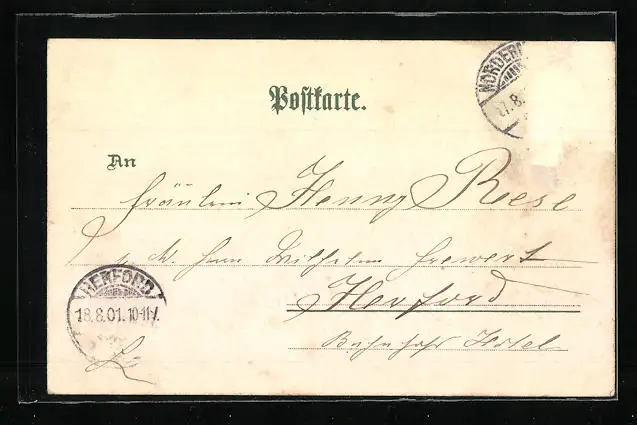 Postkarte.
NORDERN
17.8.
An
Fräulein Henny Reese
p. Ad. Herrn Wilhelm
Herford
Bahnhof Hotel
HERFORD
18.8.01.10-11V.